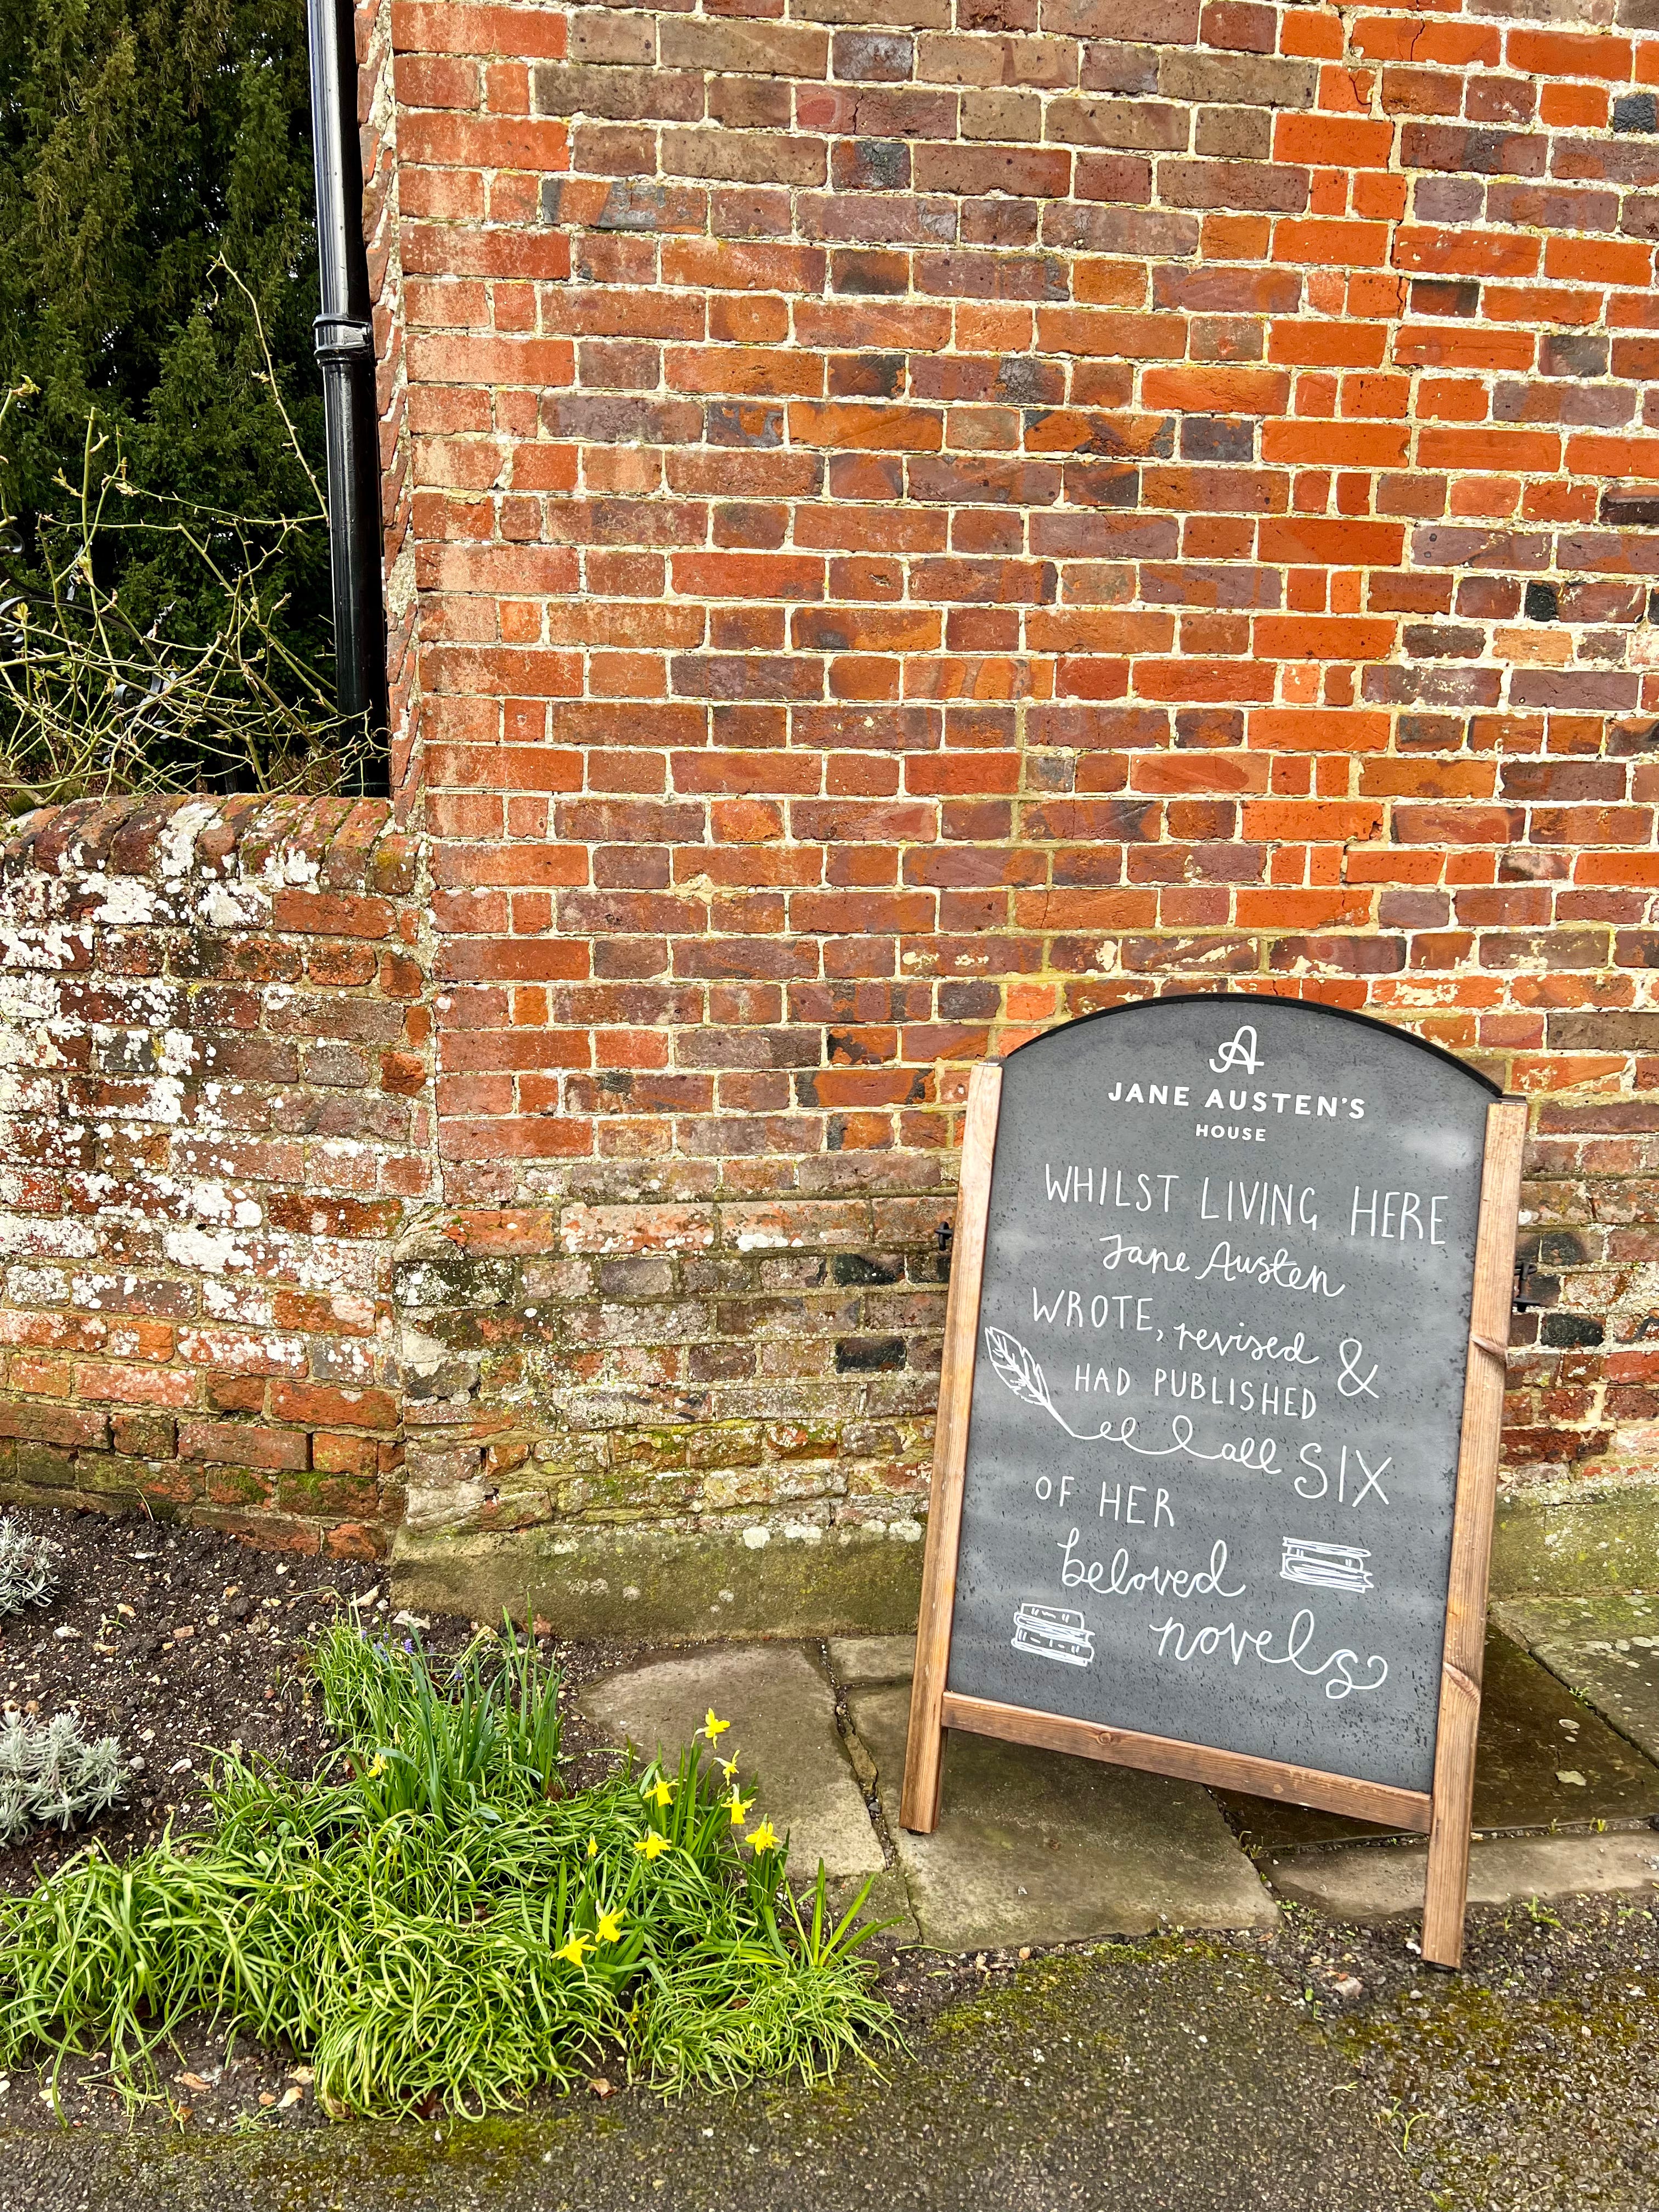 A
JANE AUSTEN'S
HOUSE
WHILST LIVING HERE
Jane Austen
WROTE, revised &
HAD PUBLISHED
all SIX
OF HER
beloved
novels